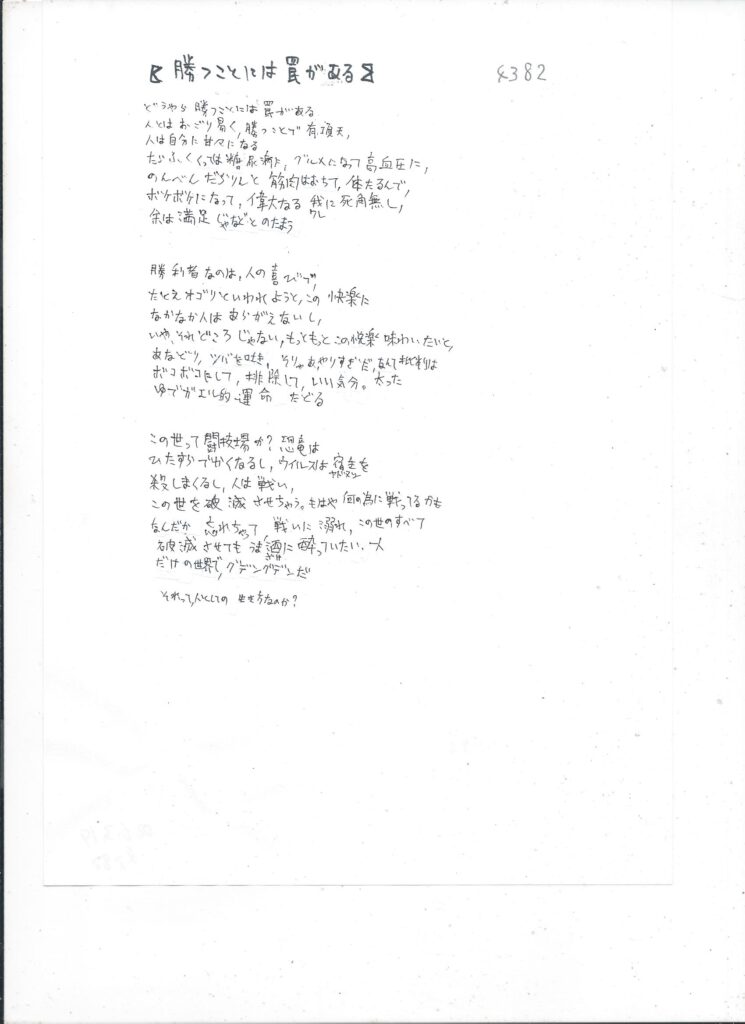 【勝つことには罠がある】 4382
どうやら勝つことには罠がある
人とはおごり易く、勝つことで有頂天、
人は自分に甘々になる
たらふくくっては糖尿病に、グルメになって高血圧に、
のんべんだらりんと筋肉はおちて、体たるんで、
ボケボケになって、偉大なる我に死角無し、
ワレ
余は満足じゃなどとのたまう
勝利者なのは、人の喜びで、
たとえオゴリといわれようと、この快楽に
なかなか人はあらがえないし、
いや、それどころじゃない、もっともっとこの快楽味わいたいと、
あなどり、ツバを吐き、そりゃあ、やりすぎだ、なんて批判は
ボコボコにして、排除して、いい気分。太った
ゆでガエル的運命たどる
この世って闘技場か?恐竜は
ひたすらでかくなるし、ウイルスは宿主を
殺しまくるし、人は戦い、
この世を破滅させちゃう。もはや何の為に戦ってるかも
なんだか忘れちゃって戦いに溺れ、この世のすべて
破滅させてもうま酒に酔っていたい、人
だけの世界で、グデングデンだ
それって、人としての生き方なのか?